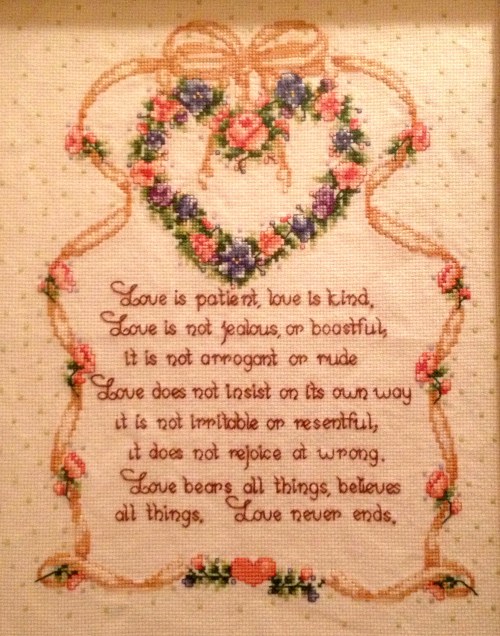 Love is patient, love is kind,
Love is not jealous, or boastful,
it is not arrogant or rude
Love does not insist on its own way
it is not irritable or resentful,
it does not rejoice at wrong.
Love bears all things, believes
all things. Love never ends.